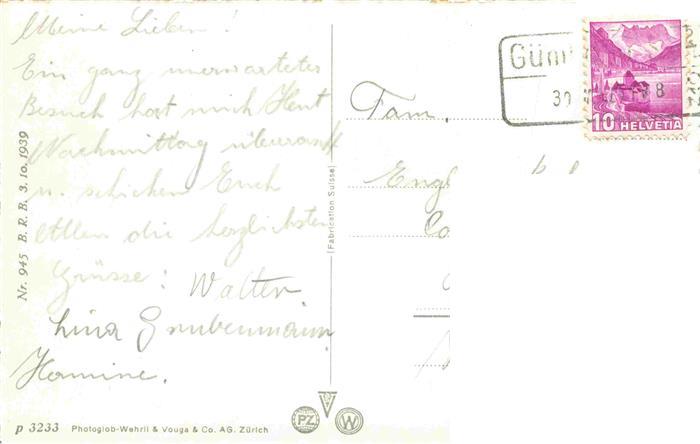 Meine Lieben!
Ein ganz unerwarteter
Besuch hat mich Heut
Nachmittag überrascht
u. schicken Euch
Allen die herzlichsten
Grüsse: Walter
Lina Grubenmann
Hermine.
Nr. 945 B. R. B. 3. 10. 1939
(Fabrication Suisse)
p 3233 Photoglob-Wehrli & Vouga & Co. AG. Zürich
PZ W
Fam.
Engl
Güm
30
38
10 HELVETIA